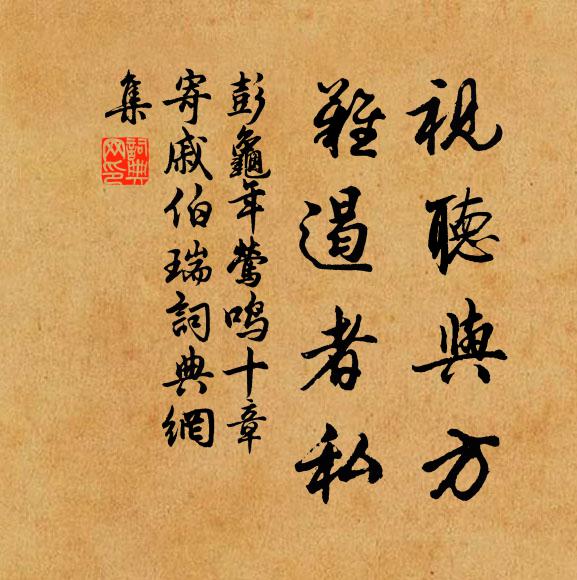 視聽與方
難遏者私
彭龜年鶯鳴十章
寄戚伯瑞詞典網
集
詞典
网印